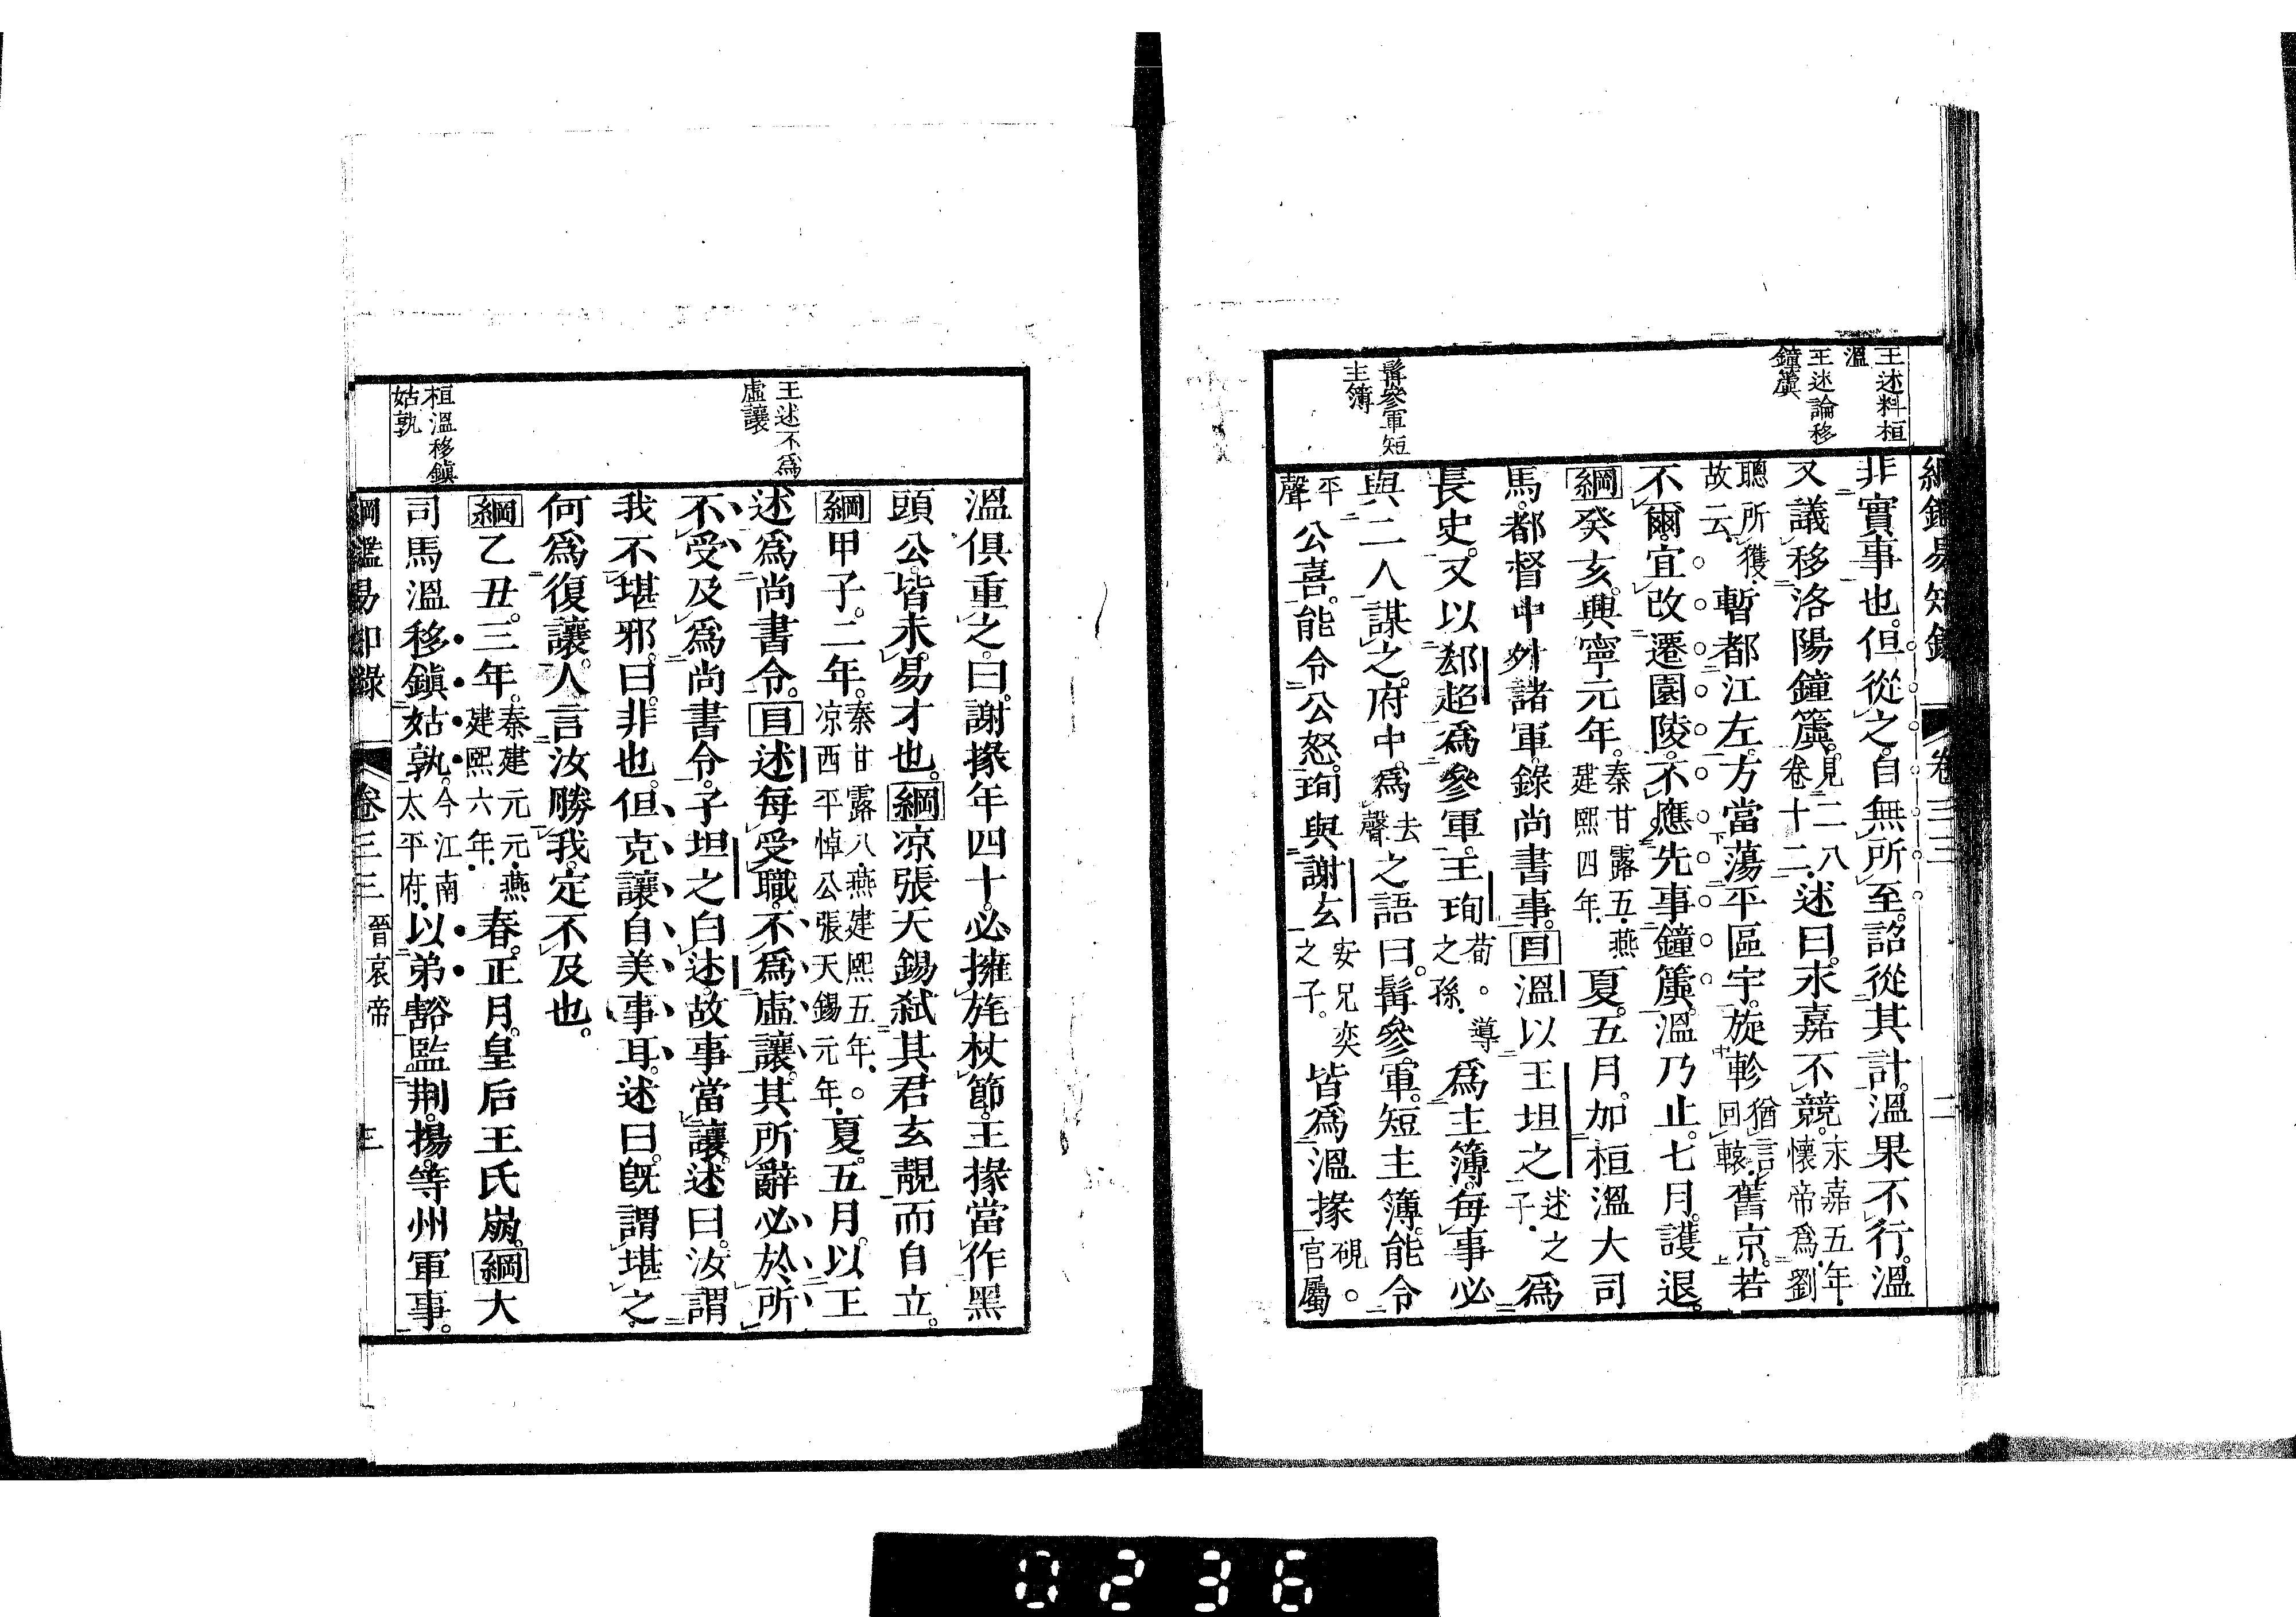 綱鑑易知錄 卷三三 二
王述料桓
溫
王述論移
鐘簴
髯參軍短
主簿
非實事也。但從之。自無所至。詔從其計。溫果不行。溫
又議移洛陽鐘簴。見二八卷十二。述曰。永嘉不競。永嘉五年。懷帝爲劉
聰所獲。故云。暫都江左。方當蕩平區宇。旋軫猶言回轅。舊京。若
不爾。宜改遷園陵。不應先事鐘簴。溫乃止。七月。護退。
綱癸亥。興寧元年。秦甘露五。燕建熙四年。夏。五月。加桓溫大司
馬。都督中外諸軍。錄尚書事。目溫以王坦之述之子。爲
長史。又以郄超爲參軍。王珣荀。導之孫。爲主簿。每事必
與二人謀之。府中爲去聲之語曰。髯參軍。短主簿。能令
平聲公喜。能令公怒。珣與謝玄安兄奕之子。皆爲溫掾硯。官屬
王述不爲
虛讓
桓溫移鎭
姑孰
溫俱重之。曰。謝掾年四十。必擁旄杖節。王掾當作黑
頭公。皆未易才也。綱凉張天錫弑其君玄靚而自立。
綱甲子。二年。秦甘露八。燕建熙五年。凉西平悼公張天錫元年。夏。五月。以王
述爲尚書令。目述每受職。不爲虛讓。其所辭必於所
不受。及爲尚書令。子坦之白述。故事當讓。述曰。汝謂
我不堪邪。曰。非也。但克讓自美事耳。述曰。旣謂堪之。
何爲復讓。人言汝勝我。定不及也。
綱乙丑。三年。秦建元元。燕建熙六年。春。正月。皇后王氏崩。綱大
司馬溫移鎭姑孰。今江南太平府。以弟豁監荆。揚。等州軍事。
綱鑑易知錄 卷三三 晉哀帝 三
0236